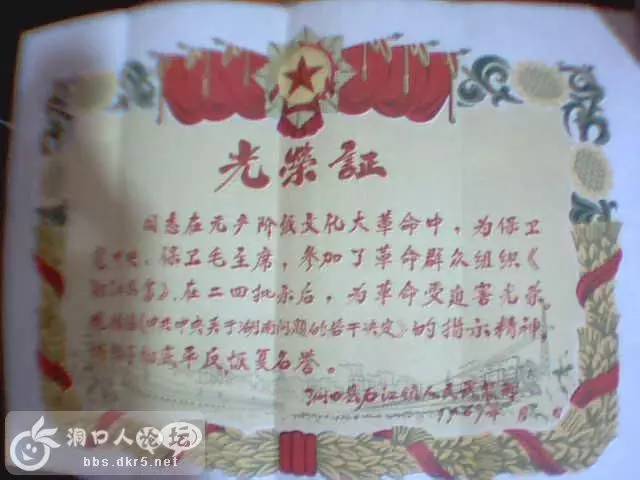 光榮証
同志在无产阶级文化大革命中，为保卫
党中央、保卫毛主席，参加了革命群众组织《
》，在二四批示后，为革命受迫害光荣。
《中共中央关于湖南问题的若干决定》的指示精神，
平反恢复名誉。
洞口县石江镇人民武装部
1967年 月 日
洞口人论坛
bbs.dkr5.net